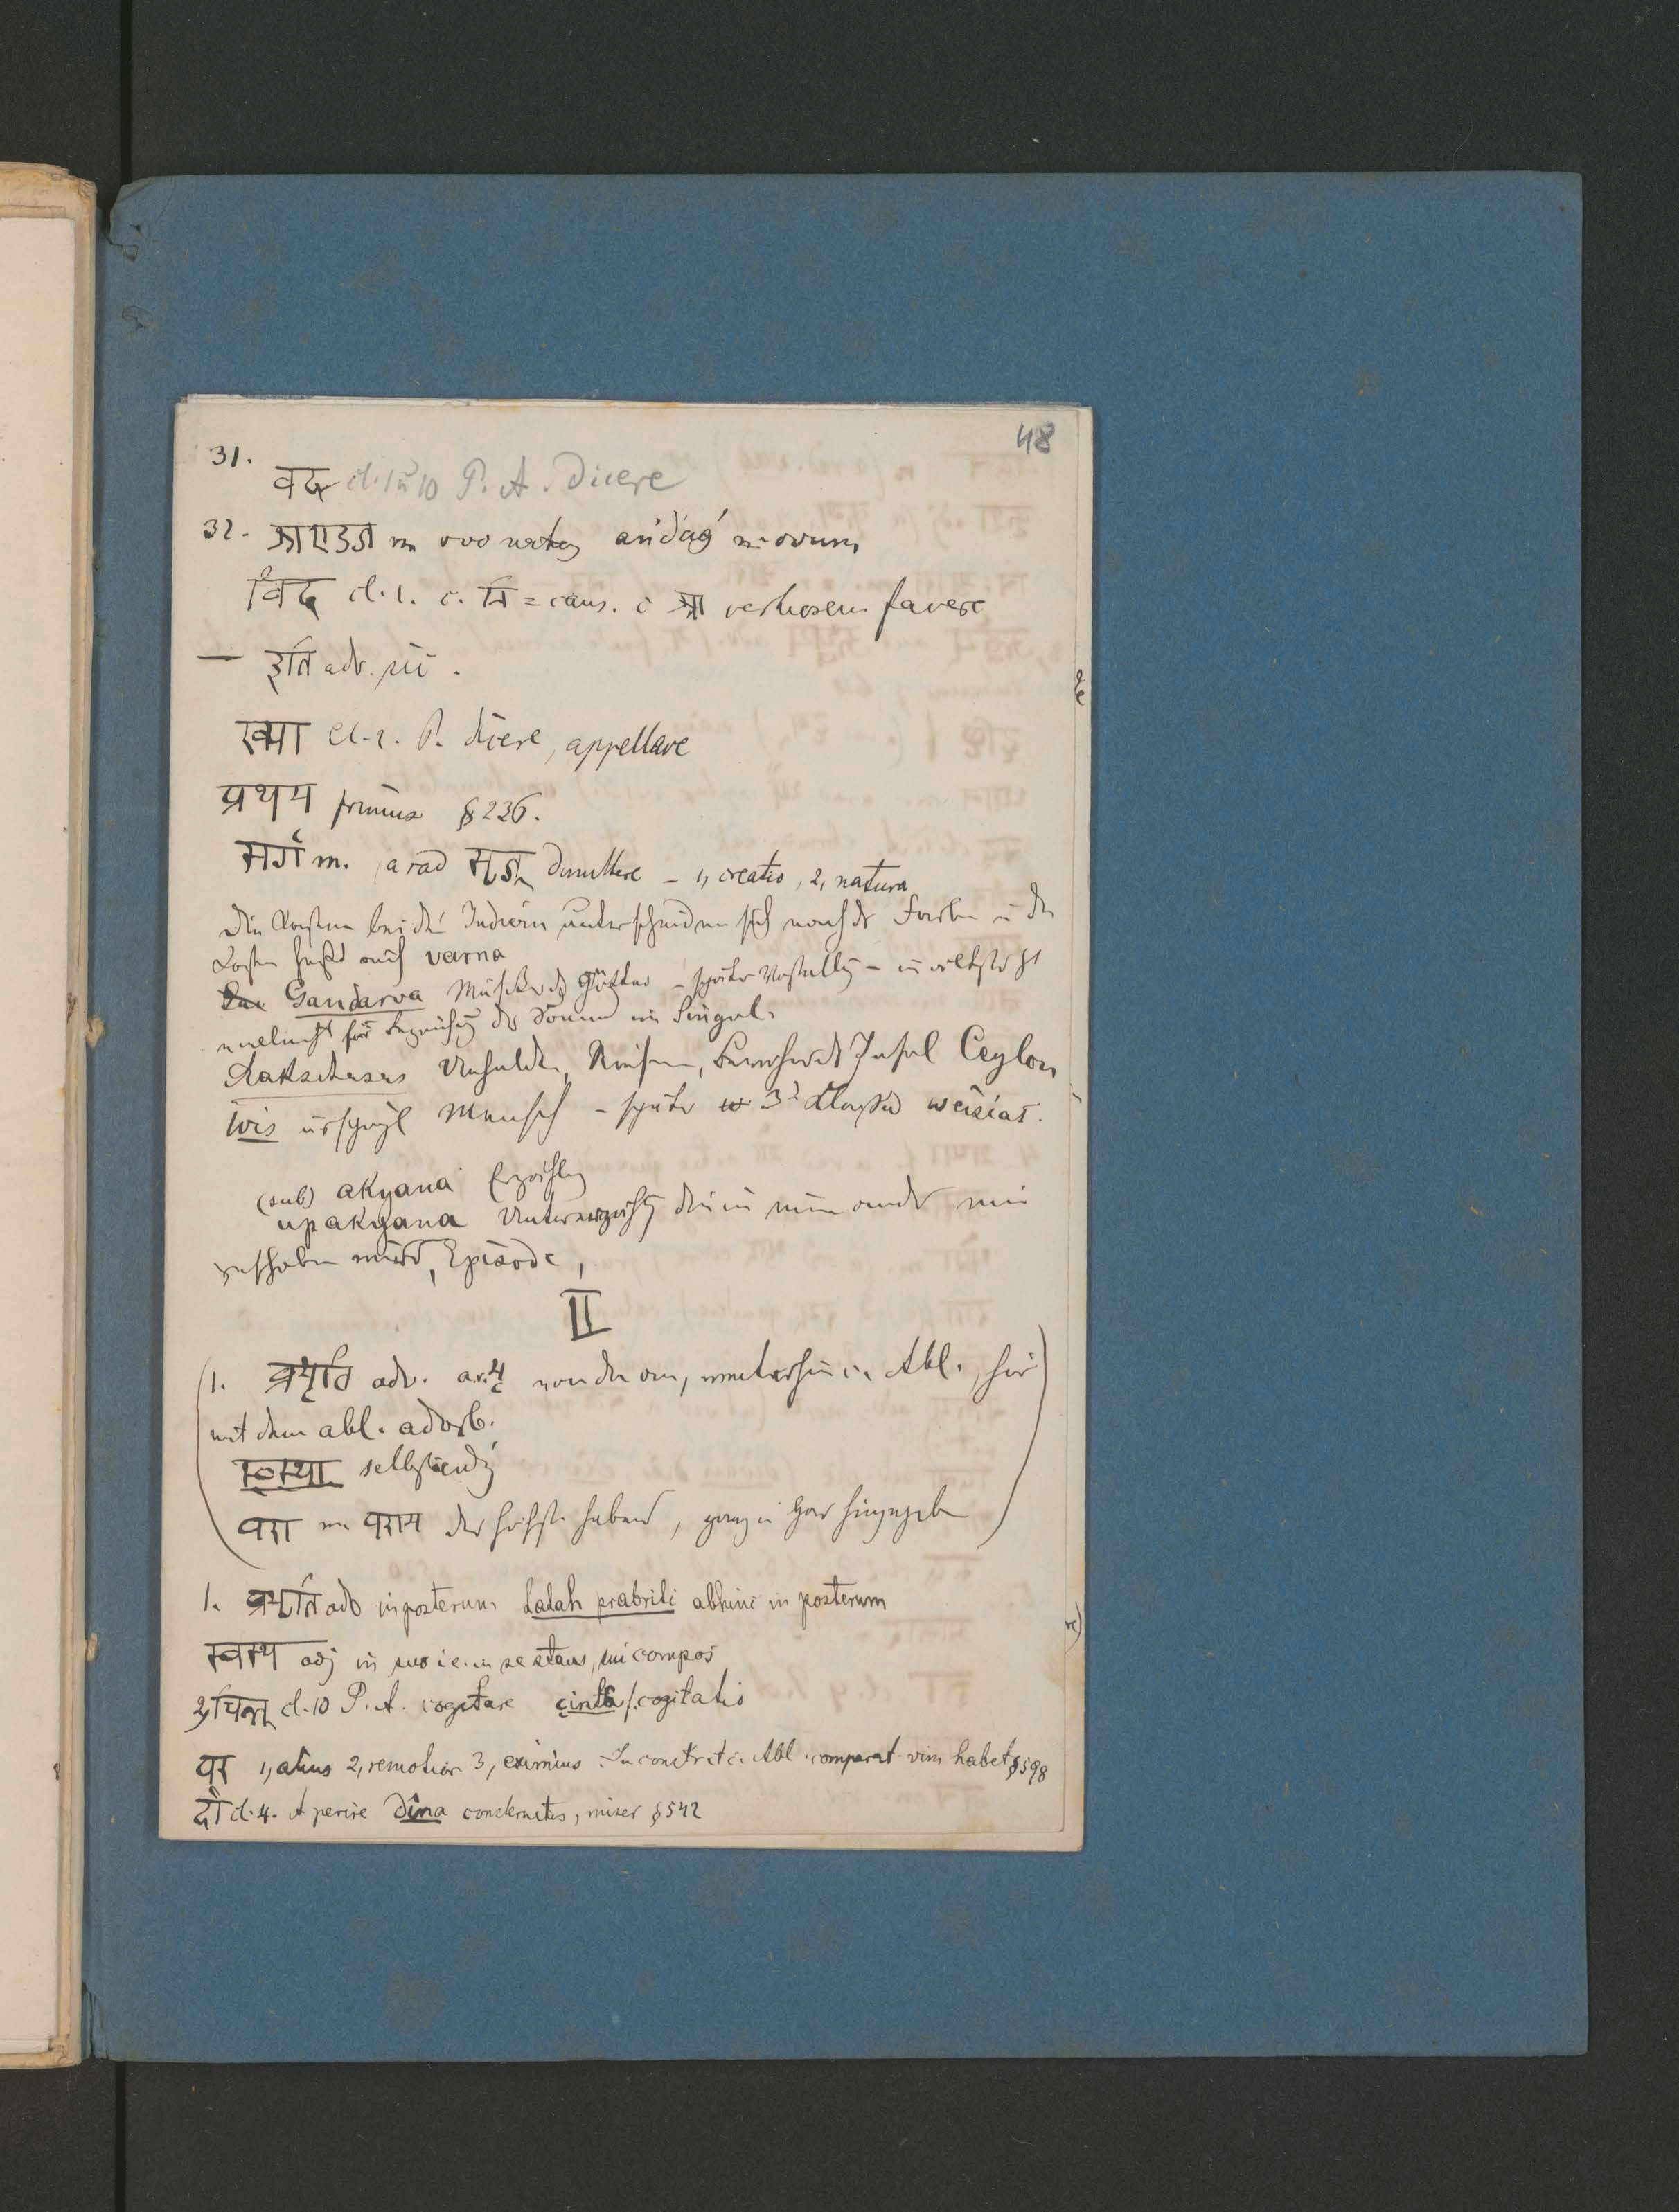 48
31.
वद् cl. 1 u 10 P. A. Dicere
32. अण्डज m ovo natus andag m ovum
विद् cl. 1. c. नि = caus. c आ
इति adv. sic.
ख्या cl. 2. P. dicere, appellare
प्रथम primus § 236.
सर्ग m. a rad सृज् dimittere – 1, creatio, 2, natura
Die Kasten bei den Indiern unterscheiden sich nach der Farbe u der
Kasten heißt auch varna
Gandarva Musiker der Götter – später Vorstellung –
vielleicht für Bezeichung der Sonne im Singul.
Rakschasas Unholde, Riesen, Bewohner der Insel Ceylon
Wis ursprgl Mensch – später 3te Klasse
(sub) akyana Erzählung
upakyana Untererzählung die in eine andere
geschoben wird, Episode,
II
1. प्रभृति adv. von da an, weiterhin c. Abl., hier
mit dem abl. adverb.
स्वस्था selbständig
परा das höchste habend, ganz u gar hingegeben
1. प्रभृति adv in posterum tatah prabriti abhinc in posterum
स्वस्थ adj in suo i.e. in se stans, sui compos
2, चिन्त् cl. 10 P. A. cogitare cinta f. cogitatio
पर 1, alius 2, remotior 3, eximius. In constr. c. Abl. comparat. vim habet § 598
दी cl. 4. A perire Dina consternatus, miser § 542